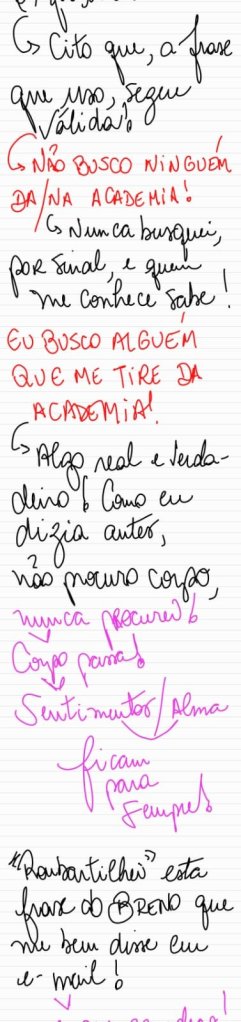 ↳ Cito que, a frase
que uso, segue
Válida!
↳ NÃO BUSCO NINGUÉM
DA/NA ACADEMIA!
↳ Nunca busquei,
por sinal, e quem
me conhece sabe!
EU BUSCO ALGUÉM
QUE ME TIRE DA
ACADEMIA!
↳ Algo real e verda-
deiro! Como eu
dizia antes,
não procuro corpo,
nunca procurei!
Corpo passa!
Sentimentos/Alma
ficam
para
sempre!
"Roubartilhei" esta
frase do BRENO que
me bem disse em
e-mail!